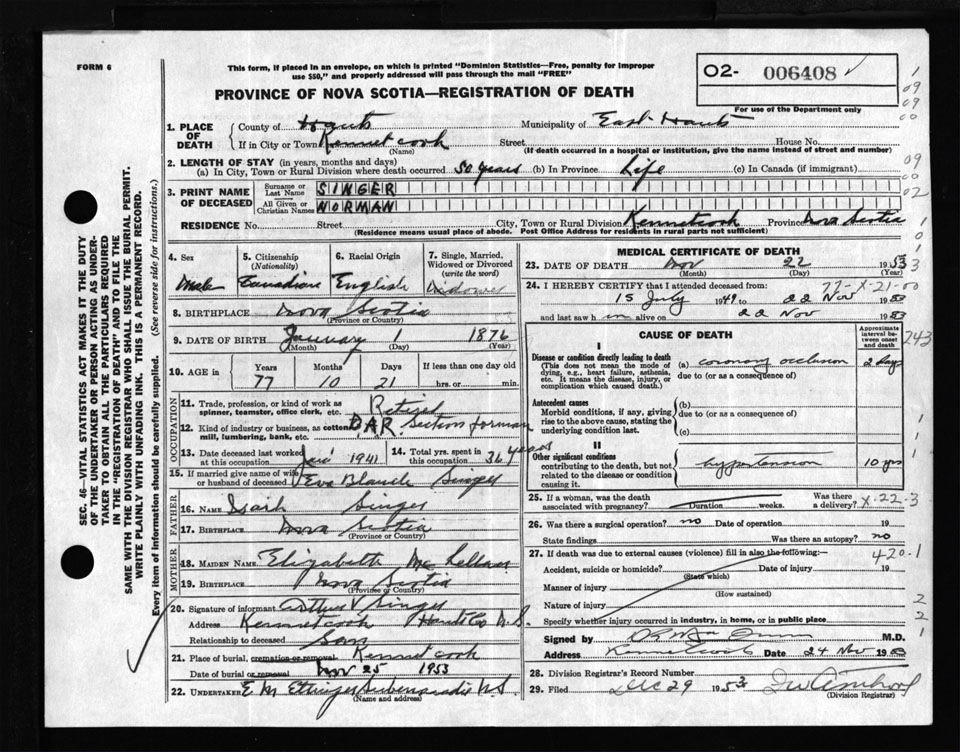 FORM 6
This form, if placed in an envelope, on which is printed "Dominion Statistics—Free, penalty for improper
use $50," and properly addressed will pass through the mail "FREE"
PROVINCE OF NOVA SCOTIA—REGISTRATION OF DEATH
O2- 006408
For use of the Department only
1. PLACE OF DEATH
County of Hants Municipality of East Hants
If in City or Town Kennetcook Street House No.
(Name) (If death occurred in a hospital or institution, give the name instead of street and number)
2. LENGTH OF STAY (in years, months and days)
(a) In City, Town or Rural Division where death occurred 50 years (b) In Province Life (c) In Canada (if immigrant)
3. PRINT NAME OF DECEASED
Surname or Last Name SINGER
All Given or Christian Names NORMAN
RESIDENCE No. Street City, Town or Rural Division Kennetcook Province Nova Scotia
(Residence means usual place of abode. Post Office Address for residents in rural parts not sufficient)
4. Sex Male
5. Citizenship (Nationality) Canadian
6. Racial Origin English
7. Single, Married, Widowed or Divorced (write the word) Widower
8. BIRTHPLACE Nova Scotia
(Province or Country)
9. DATE OF BIRTH January 1 1876
(Month) (Day) (Year)
10. AGE in Years Months Days If less than one day old
77 10 21 hrs. or min.
OCCUPATION
11. Trade, profession, or kind of work as spinner, teamster, office clerk, etc. Retired
12. Kind of industry or business, as cotton mill, lumbering, bank, etc. D.A.R. Section forman
13. Date deceased last worked at this occupation Jan 1941
14. Total yrs. spent in this occupation 36 years
15. If married give name of wife or husband of deceased Eva Blanch Singer
FATHER
16. NAME Singer
17. BIRTHPLACE Nova Scotia
(Province or Country)
MOTHER
18. MAIDEN NAME Elizabeth
19. BIRTHPLACE Nova Scotia
(Province or Country)
20. Signature of informant Arthur V Singer
Address Kennetcook Hants Co N.S.
Relationship to deceased Son
21. Place of burial, cremation or removal Kennetcook
Date of burial or removal Nov 25 1953
22. UNDERTAKER E M Ettinger Shubenacadie NS
(Name and address)
MEDICAL CERTIFICATE OF DEATH
23. DATE OF DEATH Nov 22 1953
(Month) (Day) (Year)
24. I HEREBY CERTIFY that I attended deceased from: 77-X-21-00
15 July 1949 to 22 Nov 1953
and last saw h im alive on 22 Nov 1953
CAUSE OF DEATH
Approximate interval between onset and death
I
Disease or condition directly leading to death
(This does not mean the mode of dying, e.g., heart failure, asthenia, etc. It means the disease, injury, or complication which caused death.)
(a) coronary occlusion 2 days
due to (or as a consequence of)
Antecedent causes
Morbid conditions, if any, giving rise to the above cause, stating the underlying condition last.
(b)
due to (or as a consequence of)
(c)
II
Other significant conditions
contributing to the death, but not related to the disease or condition causing it
hypertension 10 yrs
25. If a woman, was the death associated with pregnancy? Duration weeks. Was there a delivery? X-22-3
26. Was there a surgical operation? no Date of operation 19
State findings Was there an autopsy? no
27. If death was due to external causes (violence) fill in also the following:
420.1
Accident, suicide or homicide? Date of injury 19
(State which)
Manner of injury
(How sustained)
Nature of injury
Specify whether injury occurred in industry, in home, or in public place
Signed by M.D.
Address Kennetcook Date 24 Nov 1953
28. Division Registrar's Record Number
29. Filed Dec 29 1953
(Division Registrar)
243
SEC. 46—VITAL STATISTICS ACT MAKES IT THE DUTY
OF THE UNDERTAKER OR PERSON ACTING AS UNDER-
TAKER TO OBTAIN ALL THE PARTICULARS REQUIRED
IN THE "REGISTRATION OF DEATH" AND TO FILE THE
SAME WITH THE DIVISION REGISTRAR WHO SHALL ISSUE THE BURIAL PERMIT.
WRITE PLAINLY WITH UNFADING INK. THIS IS A PERMANENT RECORD.
Every item of information should be carefully supplied. (See reverse side for instructions.)